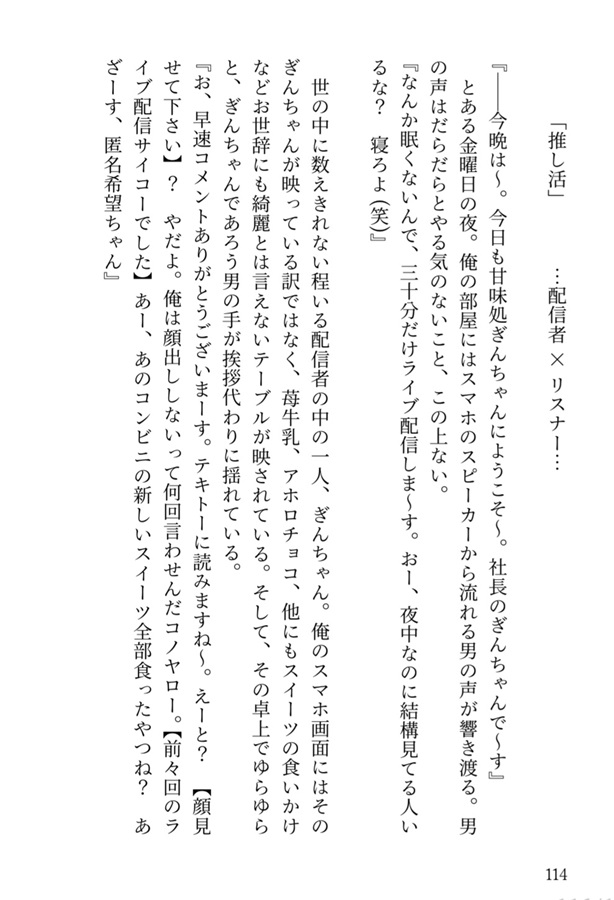 「推し活」　　…配信者 × リスナー…
『――今晩は～。今日も甘味処ぎんちゃんにようこそ～。社長のぎんちゃんで～す』
　とある金曜日の夜。俺の部屋にはスマホのスピーカーから流れる男の声が響き渡る。男
の声はだらだらとやる気のないこと、この上ない。
『なんか眠くないんで、三十分だけライブ配信しま～す。おー、夜中なのに結構見てる人い
るな？　寝ろよ(笑)』
　世の中に数えきれない程いる配信者の中の一人、ぎんちゃん。俺のスマホ画面にはその
ぎんちゃんが映っている訳ではなく、苺牛乳、アホロチョコ、他にもスイーツの食いかけ
などお世辞にも綺麗とは言えないテーブルが映されている。そして、その卓上でゆらゆら
と、ぎんちゃんであろう男の手が挨拶代わりに揺れている。
『お、早速コメントありがとうございまーす。テキトーに読みますね～。えーと？　【顔見
せて下さい】？　やだよ。俺は顔出ししないって何回言わせんだコノヤロー。【前々回のラ
イブ配信サイコーでした】あー、あのコンビニの新しいスイーツ全部食ったやつね？　あ
ざーす、匿名希望ちゃん』
114